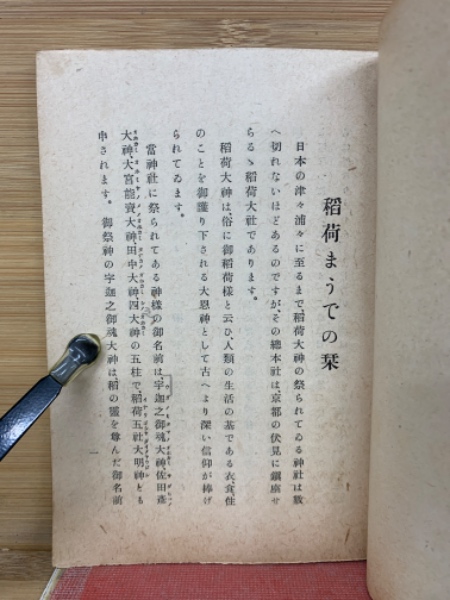 稲荷まうでの栞
日本の津々浦々に至るまで、稲荷大神の祭られてゐる神社は数
へ切れないほどあるのですが、その總本社は、京都の伏見に鎭座せ
らるゝ稲荷大社であります。
稲荷大神は、俗に御稲荷様と云ひ、人類の生活の基である衣食住
のことを御護り下される大恩神として古へより深い信仰が捧げ
られてゐます。
當神社に祭られてある神様の御名前は、宇迦之御魂大神、佐田彦
大神、大宮能賣大神、田中大神、四大神の五柱で、稲荷五社大明神とも
申されます。御祭神の宇迦之御魂大神は稲の靈を尊んだ御名前